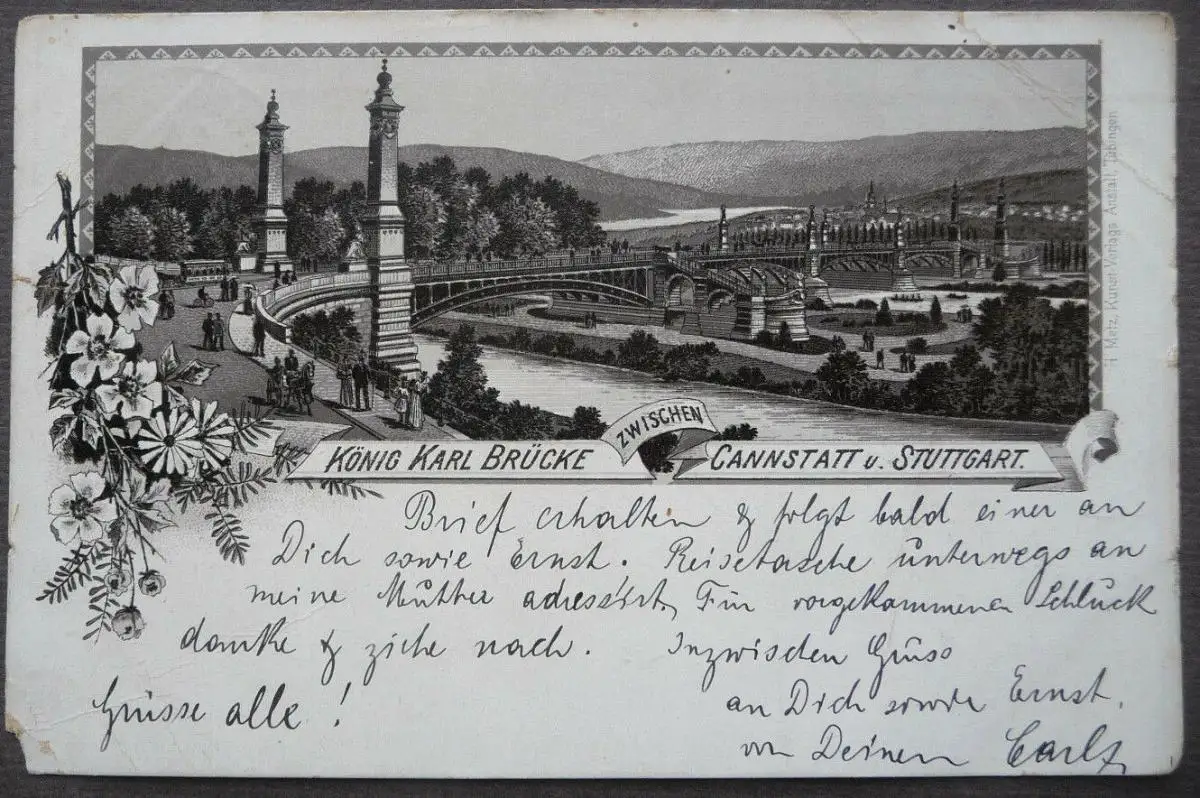 KÖNIG KARL BRÜCKE ZWISCHEN CANNSTATT U. STUTTGART.
H. Metz, Kunst-Verlags-Anstalt, Tübingen
Brief erhalten & folgt bald einer an
Dich sowie Ernst. Reisetasche unterwegs an
meine Mutter adressirt, Für vorgekommenen Schluck
danke & ziehe nach. Inzwischen Grüss
an Dich sowie Ernst.
Grüsse alle!
von Deinem Carl